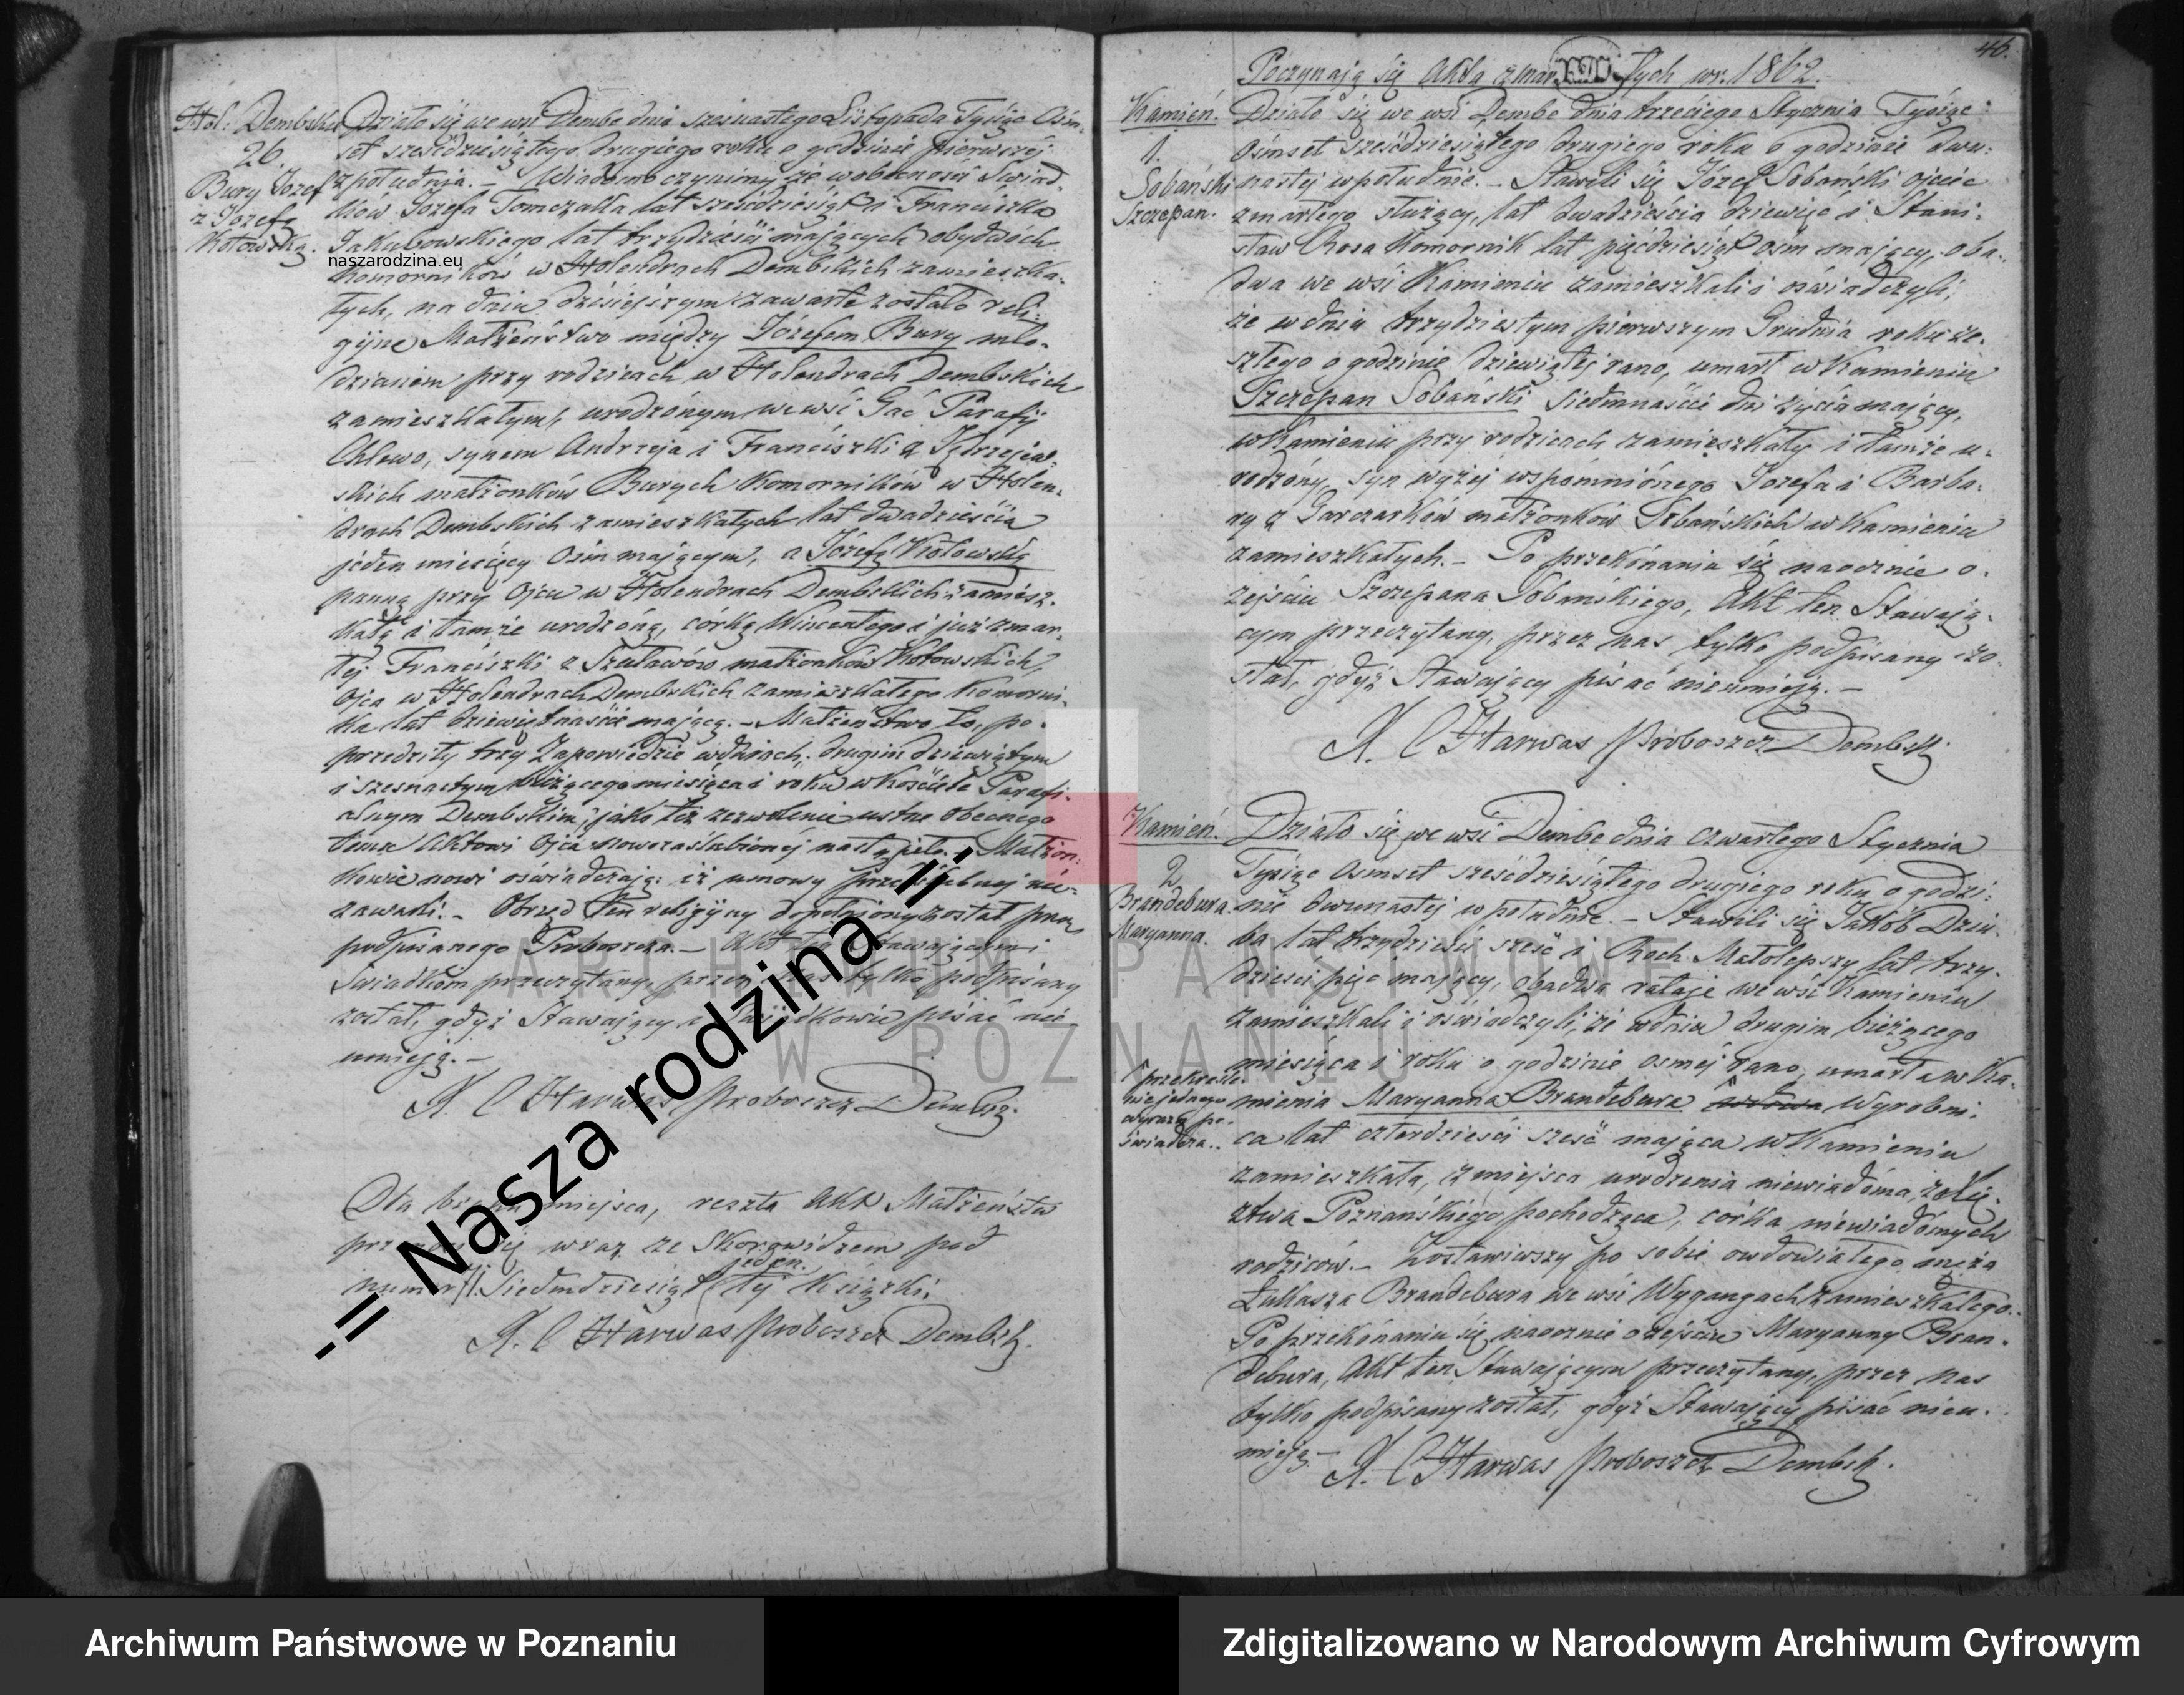 Hol: Dembskie
26.
Bury Józef
z Józefą
Kotowską.
Działo się we wsi Dembe dnia szesnastego Listopada Tysiąc Ośm-
set sześćdziesiątego drugiego roku o godzinie pierwszej
z południa. – Wiadomo czynimy że w obecności Świad-
ków Józefa Tomczaka lat sześćdziesiąt i Franciszka
Jakubowskiego lat trzydzieści mających obydwóch
naszarodzina.eu
Komorników w Holendrach Dembskich zamieszka-
łych, na dniu dzisiejszym zawarte zostało reli-
gijne Małżeństwo między Józefem Bury mło-
dzianem przy rodzicach w Holendrach Dembskich
zamieszkałym, urodzonym we wsi Gać Parafij
Chlewo, synem Andrzeja i Franciszki z
skich małżonków Burych Komorników w Holen-
drach Dembskich zamieszkałych lat dwadzieścia
jeden miesięcy ośm mającym, a Józefą Kotowską
panną przy Ojcu w Holendrach Dembskich zamiesz-
kałą i tamże urodzoną, córką Wincentego i już zmar-
łej Franciszki z małżonków Kotowskich,
Ojca w Holendrach Dembskich zamieszkałego Komorni-
ka lat dziewiętnaście mającą. – Małżeństwo to, po-
przedziły trzy Zapowiedzie w dniach, drugim dziewiątym
i szesnastym bieżącego miesiąca i roku w kościele Parafi-
alnym Dembskim; jako też zezwolenie ustne obecnego
temu Aktowi Ojca nowozaślubionej nastąpiło. – Małżon-
kowie nowi oświadczają: iż umowy przedślubnej nie-
zawarli. – Obrzęd ten religijny dopełniony został przez
podpisanego Proboszcza. – Akt ten Stawającym i
Świadkom przeczytany, przez nas tylko podpisany
został, gdyż Stawający i Świadkowie pisać nie
umieją. –
X. C Harwas Proboszcz Dembsk.
Dla braku miejsca, reszta Akt Małżeństw
wraz ze Skorowidzem pod
jeden
numer 71. Siedmdziesiąt ty Książki.
X. C Harwas Proboszcz Dembsk.
-= Nasza rodzina =-
46.
Poczynają się Akta zmarłych w r. 1862.
Kamień.
1.
Sobański
Szczepan.
Działo się we wsi Dembe dnia trzeciego Stycznia Tysiąc
Ośmset sześćdziesiątego drugiego roku o godzinie dwu-
nastej w południe. – Stawili się Józef Sobański ojciec
zmarłego służący, lat dwadzieścia dziewięć i Stani-
sław Rosa Komornik lat pięćdziesiąt ośm mający, oba-
dwa we wsi Kamieniu zamieszkali i oświadczyli,
że w dniu trzydziestym pierwszym Grudnia roku ze-
szłego o godzinie dziewiątej rano, umarł w Kamieniu
Szczepan Sobański siedmnaście dni życia mający,
w Kamieniu przy rodzicach zamieszkały i tamże u-
rodzony, syn wyżej wspomnionego Józefa i Barba-
ry z Garczarków małżonków Sobańskich w Kamieniu
zamieszkałych. – Po przekonaniu się naocznie o
zejściu Szczepana Sobańskiego, Akt ten Stawają-
cym przeczytany, przez nas tylko podpisany zo-
stał, gdyż Stawający pisać nieumieją. –
X. C Harwas Proboszcz Dembsk.
Kamień.
2
Brandebura
Maryanna.
Działo się we wsi Dembe dnia czwartego Stycznia
Tysiąc Ośmset sześćdziesiątego drugiego roku o godzi-
nie dwunastej w południe. – Stawili się Jakób Dziu-
ba lat trzydzieści sześć i Roch Małolepszy lat trzy-
dzieści pięć mający, obadwa rataje we wsi Kamieniu
zamieszkali i oświadczyli, że w dniu drugim bieżącego
miesiąca i roku o godzinie osmej rano, umarła w Ka-
mieniu Maryanna Brandebura wdowa Wyrobni-
przekreśle-
nie jednego
wyrazu po-
świadcza..
ca lat czterdzieści sześć mająca w Kamieniu
zamieszkała, z miejsca urodzenia niewiadoma, z Xię-
ztwa Poznańskiego pochodząca, córka niewiadomych
rodziców. – Zostawiwszy po sobie owdowiałego męża
Łukasza Brandebura we wsi Wygangach zamieszkałego..
Po przekonaniu się naocznie o zejściu Maryanny Bran-
debura, Akt ten Stawającym przeczytany, przez nas
tylko podpisany został, gdyż Stawający pisać nieu-
mieją. – X. C Harwas Proboszcz Dembsk.
ARCHIWUM PAŃSTWOWE
W POZNANIU
Archiwum Państwowe w Poznaniu
Zdigitalizowano w Narodowym Archiwum Cyfrowym